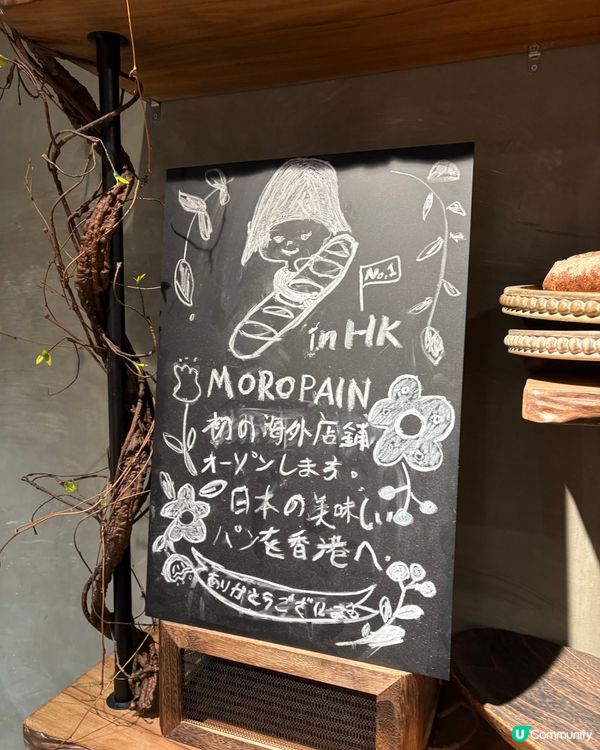 No.1
in HK
MOROPAIN
初の海外店舗
オープンします。
日本の美味しい
パンを香港へ。
ありがとうございます
U Community